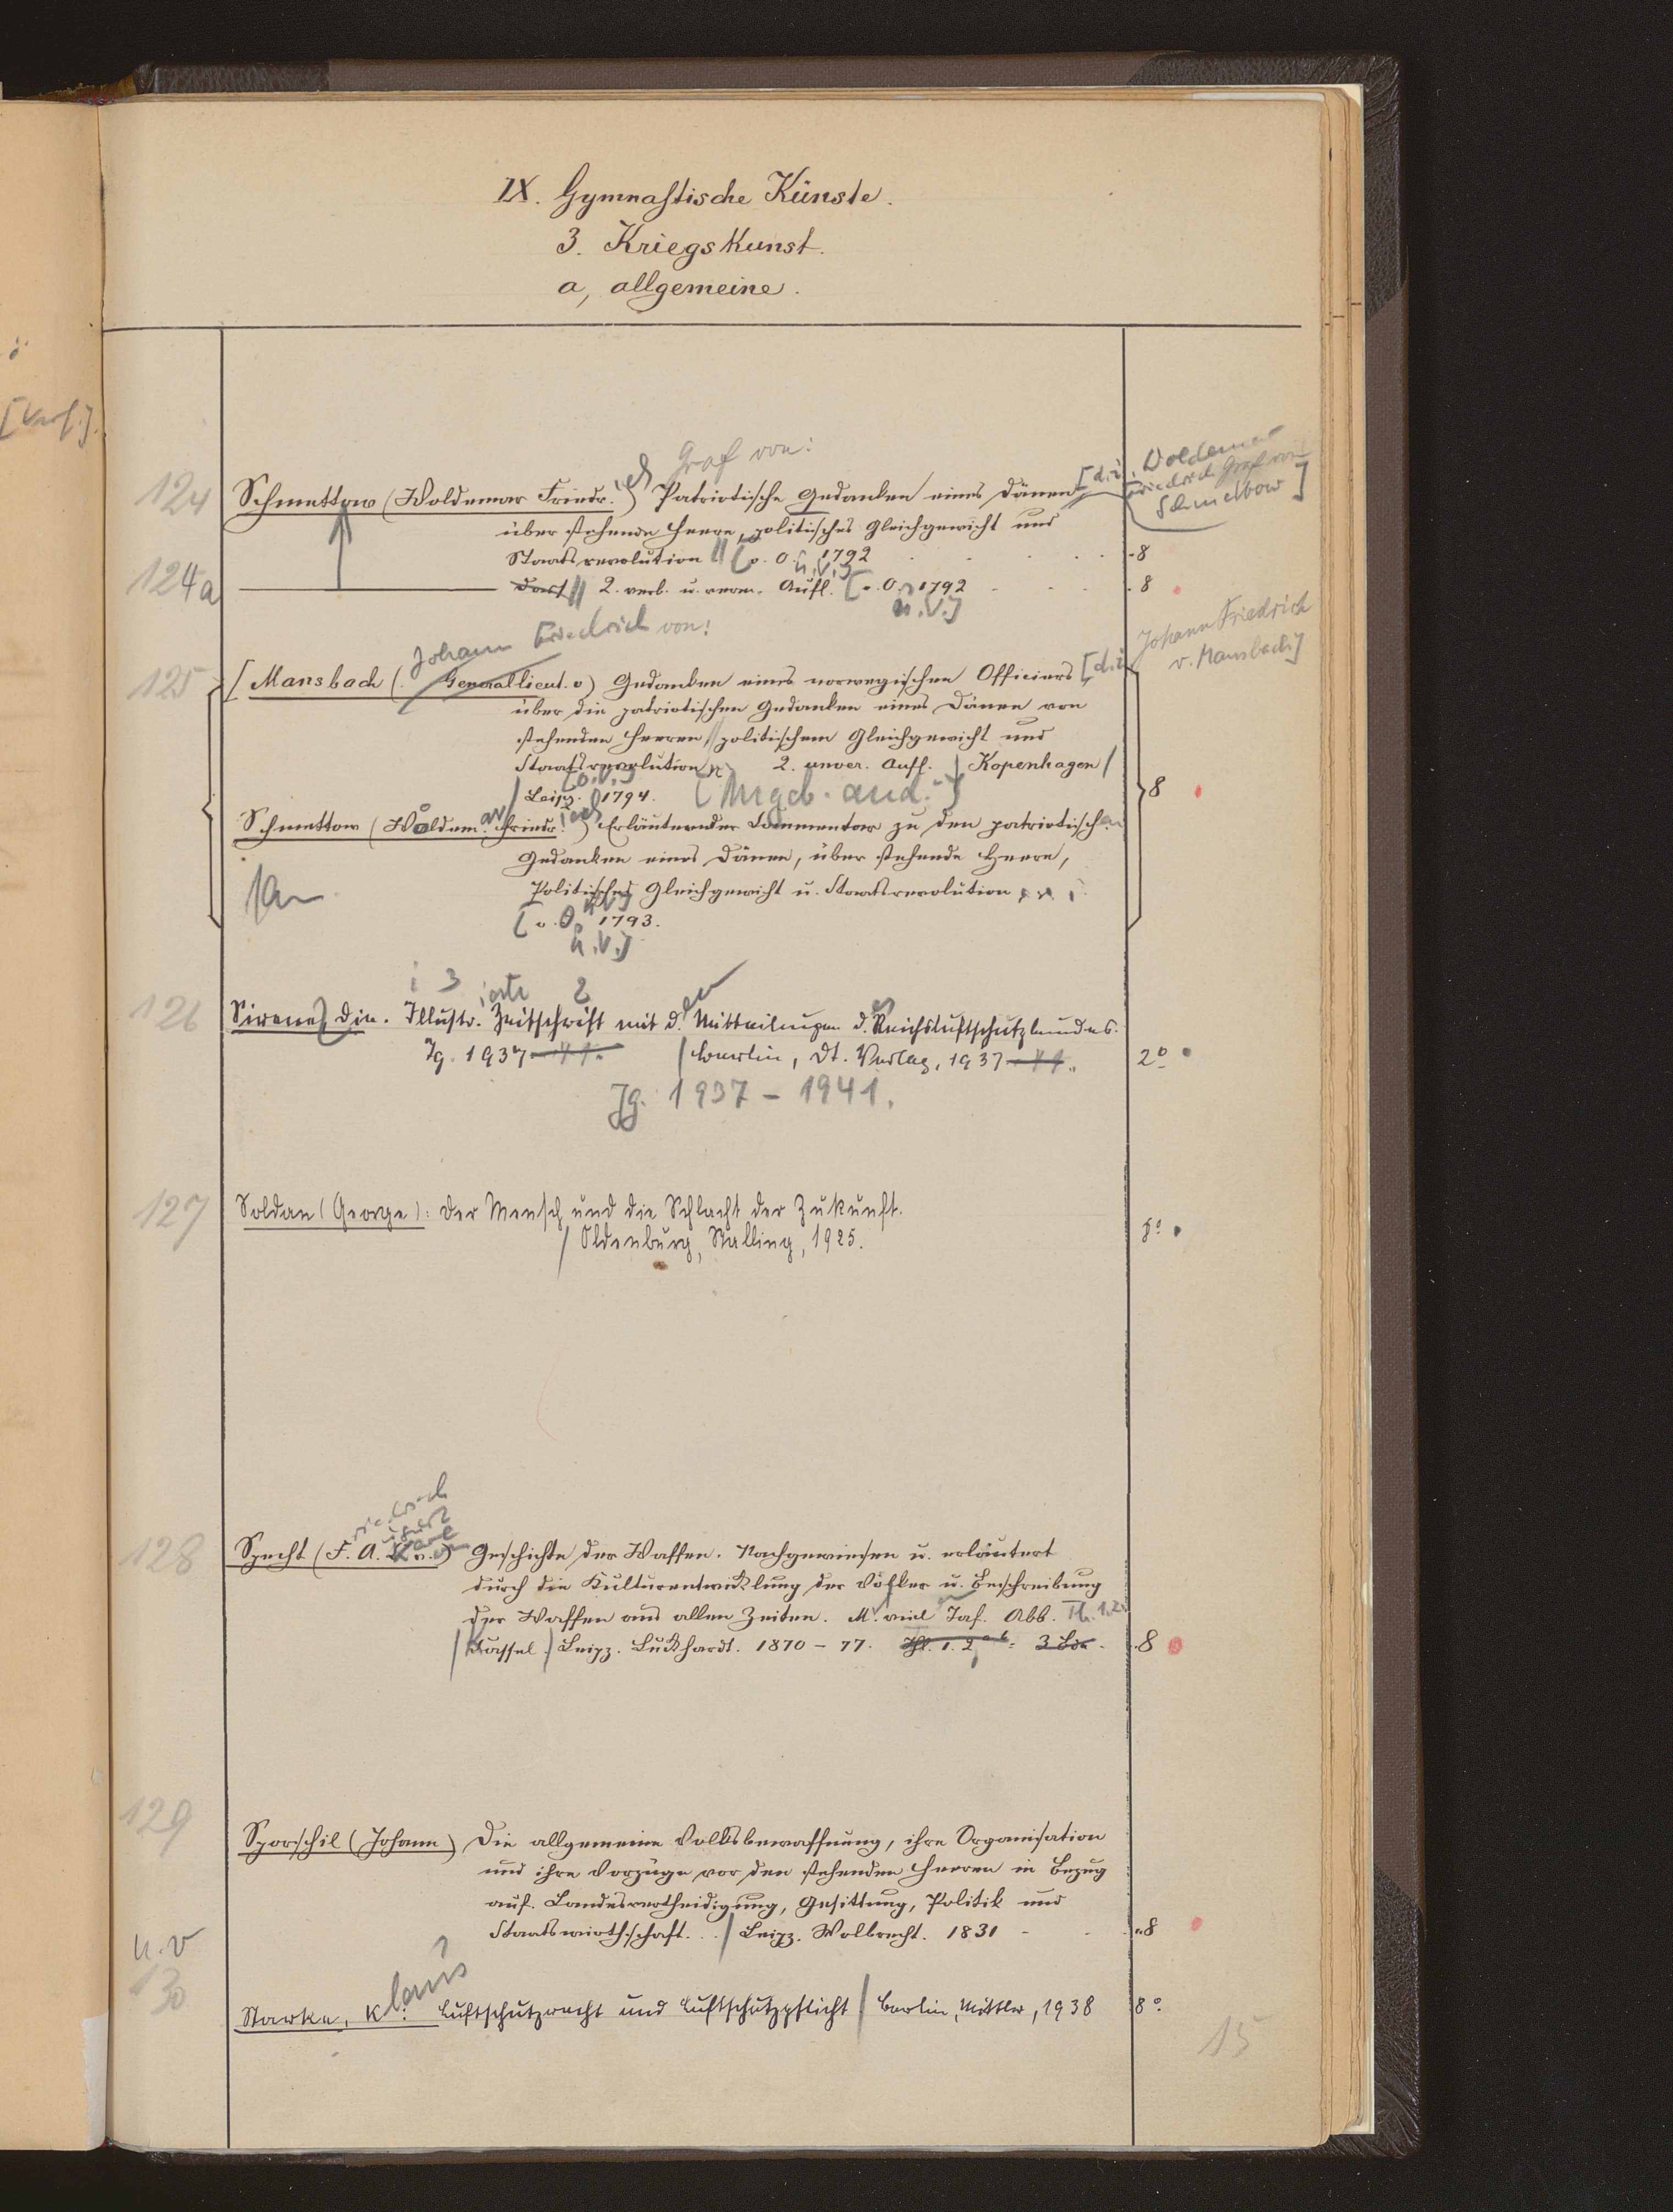 IX. Gymnastische Künste.
3. Kriegskunst.
a, allgemeine.
[Verf.]
Graf von:
124 Schmettow (Woldemar Friedr.ich) Patriotische Gedanken eines Dänen [d.i. Woldemar
Friedrich Graf von
Schmettow]
über stehende Heere, politisches Gleichgewicht und
Staatsrevolution // [o. O. 1792 8
u. V.]
124a Dass. // 2. verb. u. verm. Aufl. [o. O. 1792 8
u. V.]
Johann Friedrich von:
125 [Mansbach (Generallieut. v) Gedanken eines norwegischen Officiers [d.i. Johann Friedrich
v. Mansbach]
über die patriotischen Gedanken eines Dänen von
stehenden Heeren, politischem Gleichgewicht und
Staatsrevolution 2. unver. Aufl. / Kopenhagen /
/ Leipz. 1794. [Angeb. and.] 8
Schmettow (Woldem.ar Friedr.ich) Erläuternder Commentar zu den patriotischen
Gedanken eines Dänen, über stehende Heere,
Politisches Gleichgewicht u. Staatsrevolution
[o. O. 1793.
u. V.]
3 ierte 2
126 Sirene, Die. Illustr. Zeitschrift mit d.en Mitteilungen d.es Reichsluftschutzbundes.
Jg. 1937-41. / Berlin, Dt. Verlag, 1937-41. 2°
Jg. 1937 - 1941.
127 Soldan (George): Der Mensch und die Schlacht der Zukunft.
/ Oldenburg, Stalling, 1925. 8°
riedrich
ugust
Karl von
128 Specht (F. A. K. v.) Geschichte der Waffen. Nachgewiesen u. erläutert
durch die Kulturentwicklung der Völker u. Beschreibung
der Waffen aus allen Zeiten. M. viel Taf. Abb. Th. 1.2.
/ Kassel / Leipz. Luckhardt. 1870 - 77. Th. 1. 2 a b = 3 Bde. 8
129 Sporschil (Johann) Die allgemeine Volksbewaffnung, ihre Organisation
und ihre Vorzüge vor den stehenden Heeren in Bezug
auf Landesvertheidigung, Gesittung, Politik und
Staatswirthschaft. . . / Leipz. Wolbrecht. 1831 8
u. v
130 Starke, K.laus Luftschutzrecht und Luftschutzpflicht / Berlin, Mittler, 1938 8°
15